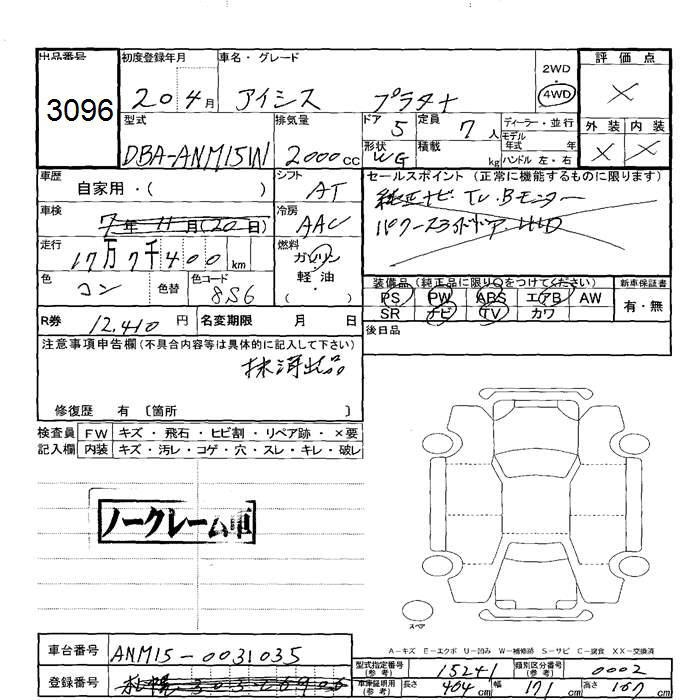 出品番号 初度登録年月 車名・グレード 2WD 評価点
3096 20 4月 アイシス プラタナ 4WD ×
型式 排気量 ドア 5 定員 7人 ディーラー・並行 外装 内装
モデル年式 年
DBA-ANM15W 2000cc 形状 WG 積載 kg ハンドル 左・右 × ×
車歴 自家用・( ) シフト AT セールスポイント (正常に機能するものに限ります)
車検 7年11月(20日) 冷房 AAC 純正ナビ・TV・Bモニター
走行 17万7千400km 燃料 ガソリン 軽・油 ( ) パワースライドドア・HID
色 コン 色替 色コード 8S6 装備品(純正品に限り○をつけてください) 新車保証書
PS PW ABS エアB AW 有・無
SR ナビ TV カワ
R券 12,410円 名変期限 月 日 後日品
注意事項申告欄(不具合内容等は具体的に記入して下さい)
抹消出品
修復歴 有 〔箇所 〕
検査員 FW キズ・飛石・ヒビ割・リペア跡・×要
記入欄 内装 キズ・汚レ・コゲ・穴・スレ・キレ・破レ
ノークレーム車
スペア
A-キズ E-エクボ U-凹み W-補修跡 S-サビ C-腐食 XX-交換済
車台番号 ANM15-0031035
型式指定番号(参考) 15241 類別区分番号(参考) 0002
登録番号 札幌
車庫証明用(参考) 長さ 464cm 幅 171cm 高さ 167cm